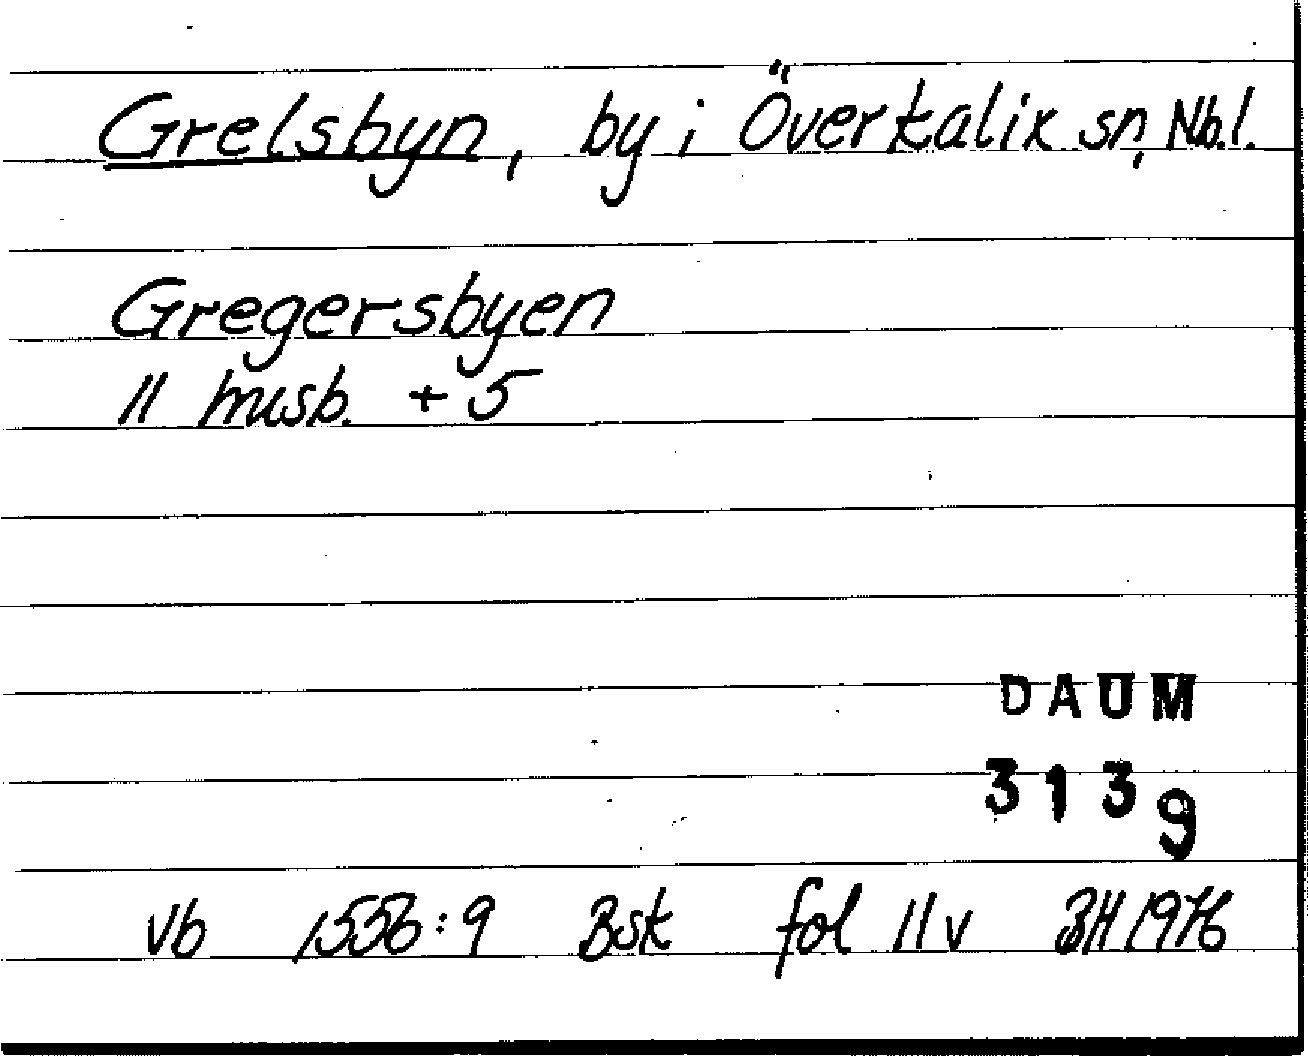 Grelsbyn, by i Överkalix sn, Nb.l.
Gregersbyen
11 husb. + 5
DAUM
3139
Vb 1556:9 Bsk fol 11v BH 1976